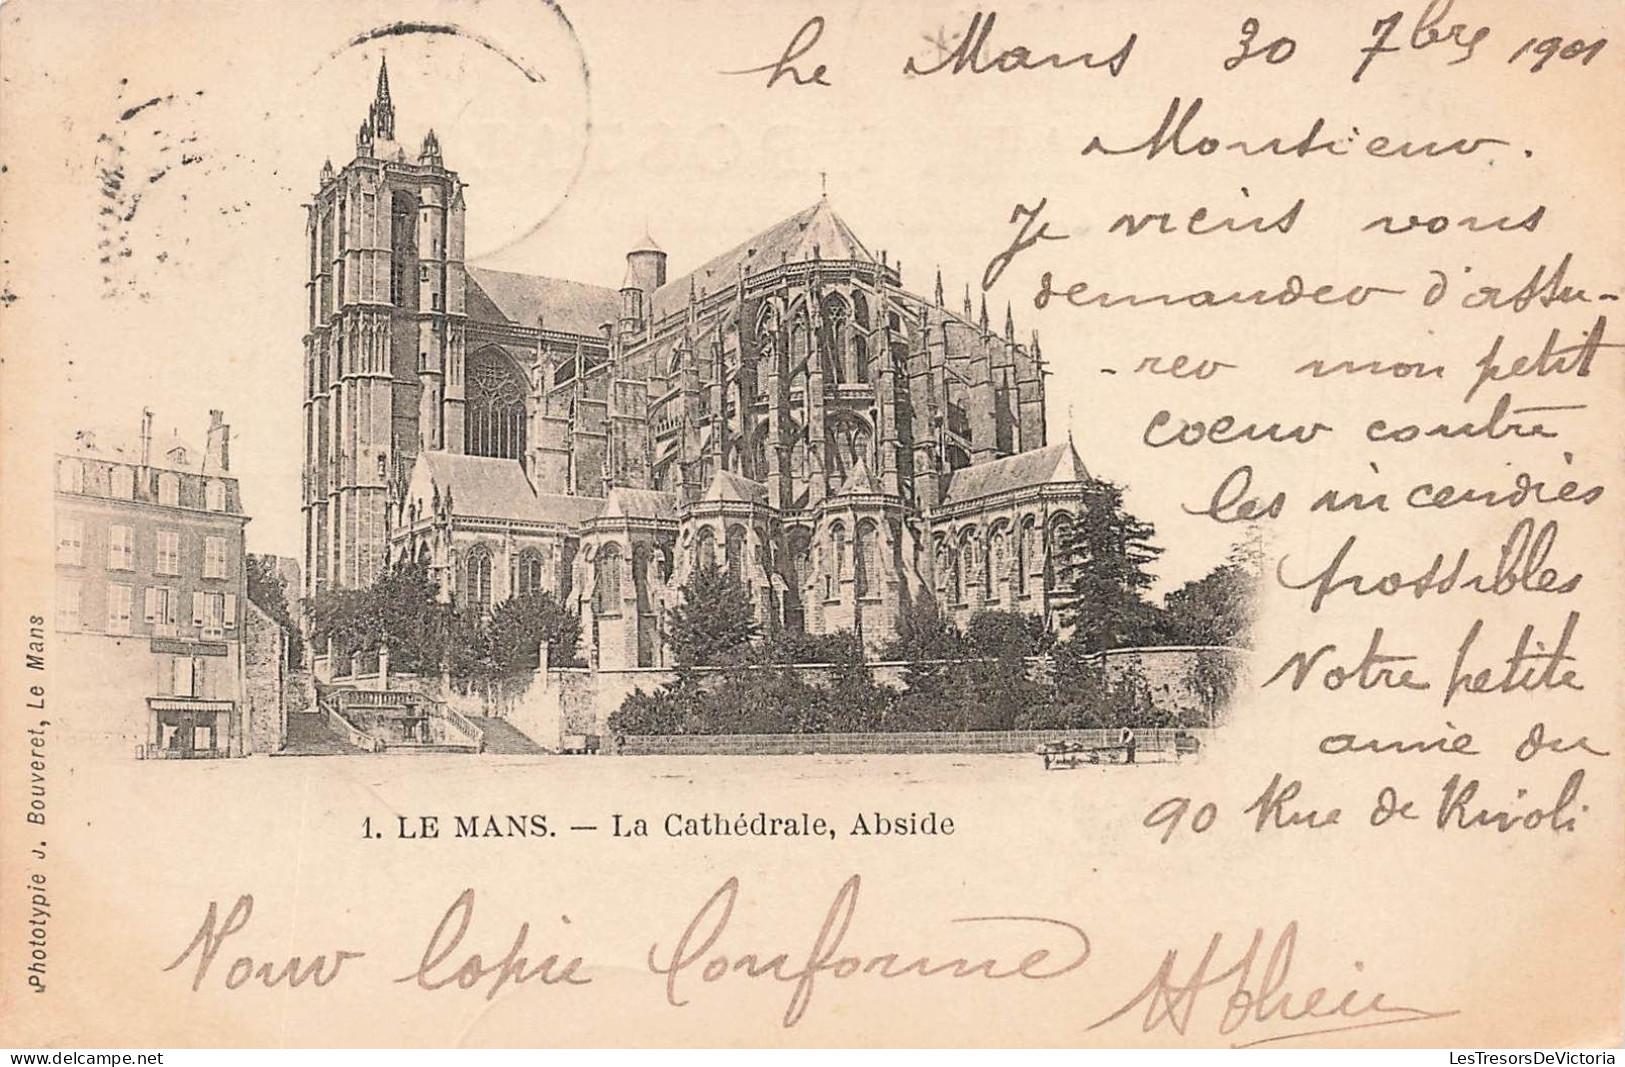 Le Mans 30 7bre 1901
Monsieur.
Je viens vous
demander d'assu-
-rer mon petit
coeur contre
les incendies
possibles
Votre petite
amie du
90 Rue de Rivoli
1. LE MANS. — La Cathédrale, Abside
Pour Copie Conforme
Phototypie J. Bouveret, Le Mans
LesTresorsDeVictoria